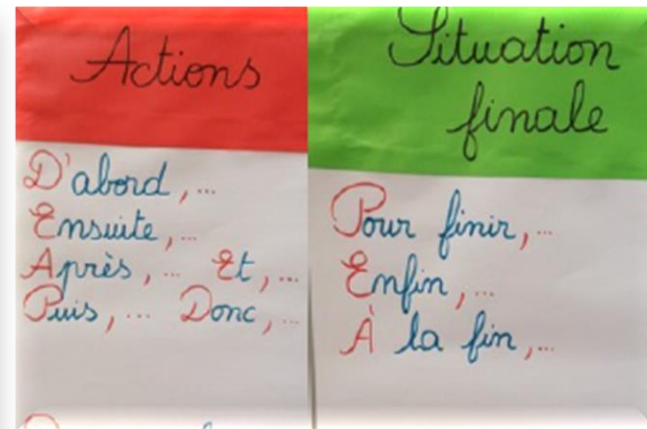 Actions
D'abord, ...
Ensuite, ...
Après, ... Et, ...
Puis, ... Donc, ...
Situation
finale
Pour finir, ...
Enfin, ...
À la fin, ...